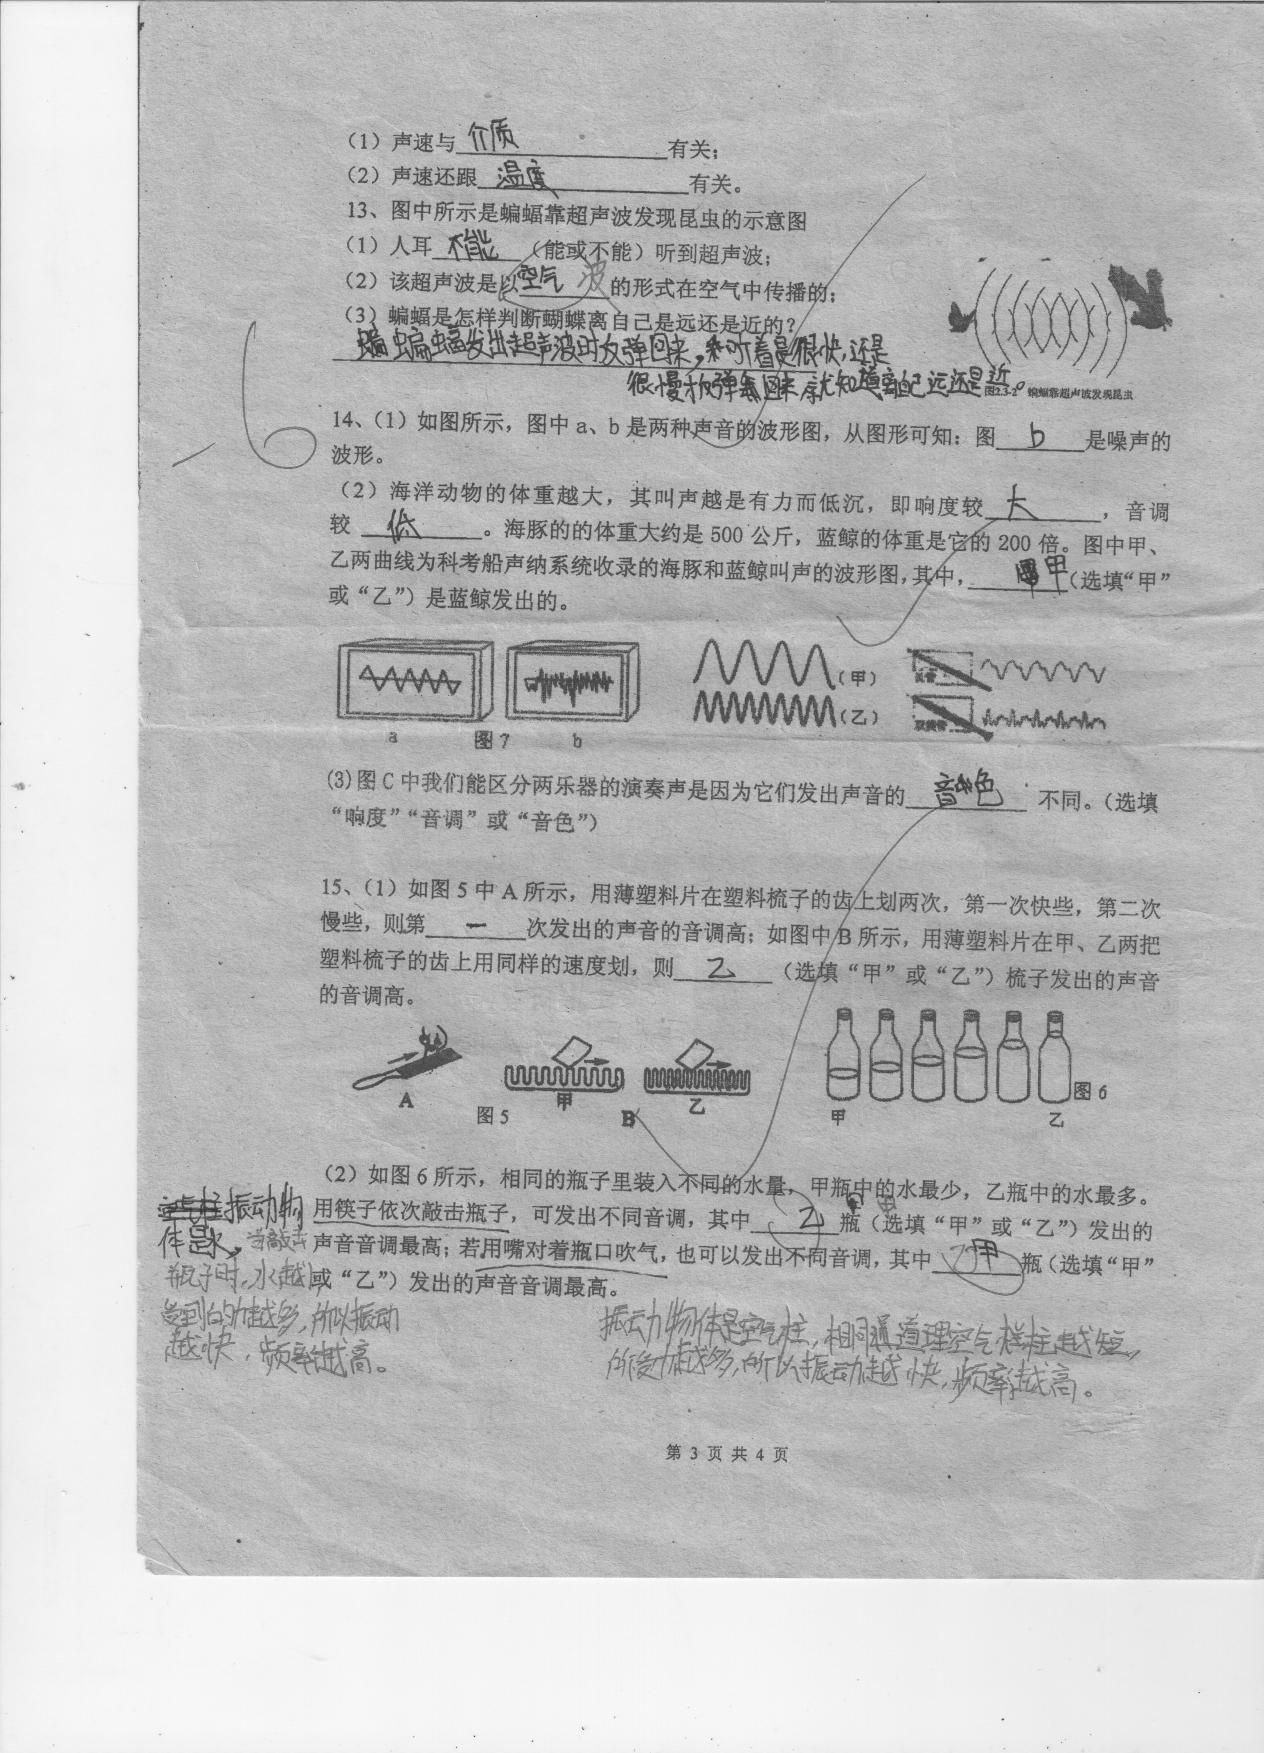 (1) 声速与 介质 有关;
(2) 声速还跟 温度 有关。
13、图中所示是蝙蝠靠超声波发现昆虫的示意图
(1) 人耳 不能 (能或不能) 听到超声波;
(2) 该超声波是以 空气 波 的形式在空气中传播的;
(3) 蝙蝠是怎样判断蝴蝶离自己是远还是近的?
蝙蝠发出超声波时反弹回来, 听着是很快,还是
很慢 反弹回来 就知道离自己远还是近。
图2.3-2 蝙蝠靠超声波发现昆虫
-6
14、(1) 如图所示,图中 a、b 是两种声音的波形图,从图形可知:图 b 是噪声的
波形。
(2) 海洋动物的体重越大,其叫声越是有力而低沉,即响度较 大 ,音调
较 低 。海豚的的体重大约是 500 公斤,蓝鲸的体重是它的 200 倍。图中甲、
乙两曲线为科考船声纳系统收录的海豚和蓝鲸叫声的波形图,其中, 甲 (选填“甲”
或“乙”) 是蓝鲸发出的。
(甲)
(乙)
a 图 7 b
(3) 图 C 中我们能区分两乐器的演奏声是因为它们发出声音的 音色 不同。(选填
“响度”“音调”或“音色”)
15、(1) 如图 5 中 A 所示,用薄塑料片在塑料梳子的齿上划两次,第一次快些,第二次
慢些,则第 一 次发出的声音的音调高;如图中 B 所示,用薄塑料片在甲、乙两把
塑料梳子的齿上用同样的速度划,则 乙 (选填“甲”或“乙”) 梳子发出的声音
的音调高。
A 图 5 甲 B 乙
甲 乙 图 6
(2) 如图 6 所示,相同的瓶子里装入不同的水量,甲瓶中的水最少,乙瓶中的水最多。
用筷子依次敲击瓶子,可发出不同音调,其中 乙 甲 瓶 (选填“甲”或“乙”) 发出的
声音音调最高;若用嘴对着瓶口吹气,也可以发出不同音调,其中 甲 瓶 (选填“甲”
或“乙”) 发出的声音音调最高。
振动物
体是水,当敲击
瓶子时,水越
受到的力越多,所以振动
越快,频率越高。
振动物体是空气柱,相同道理空气柱越短,
所受力越多,所以振动越快,频率越高。
第 3 页 共 4 页